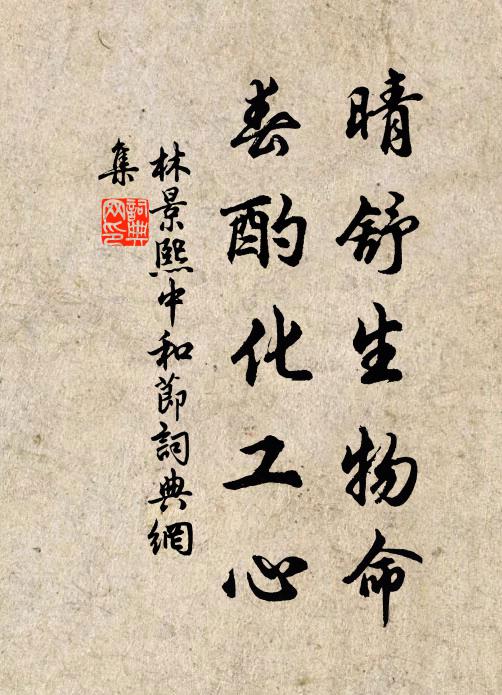 晴舒生物命
春酌化工心
林景熙中和節詞典網
集
詞典
网印